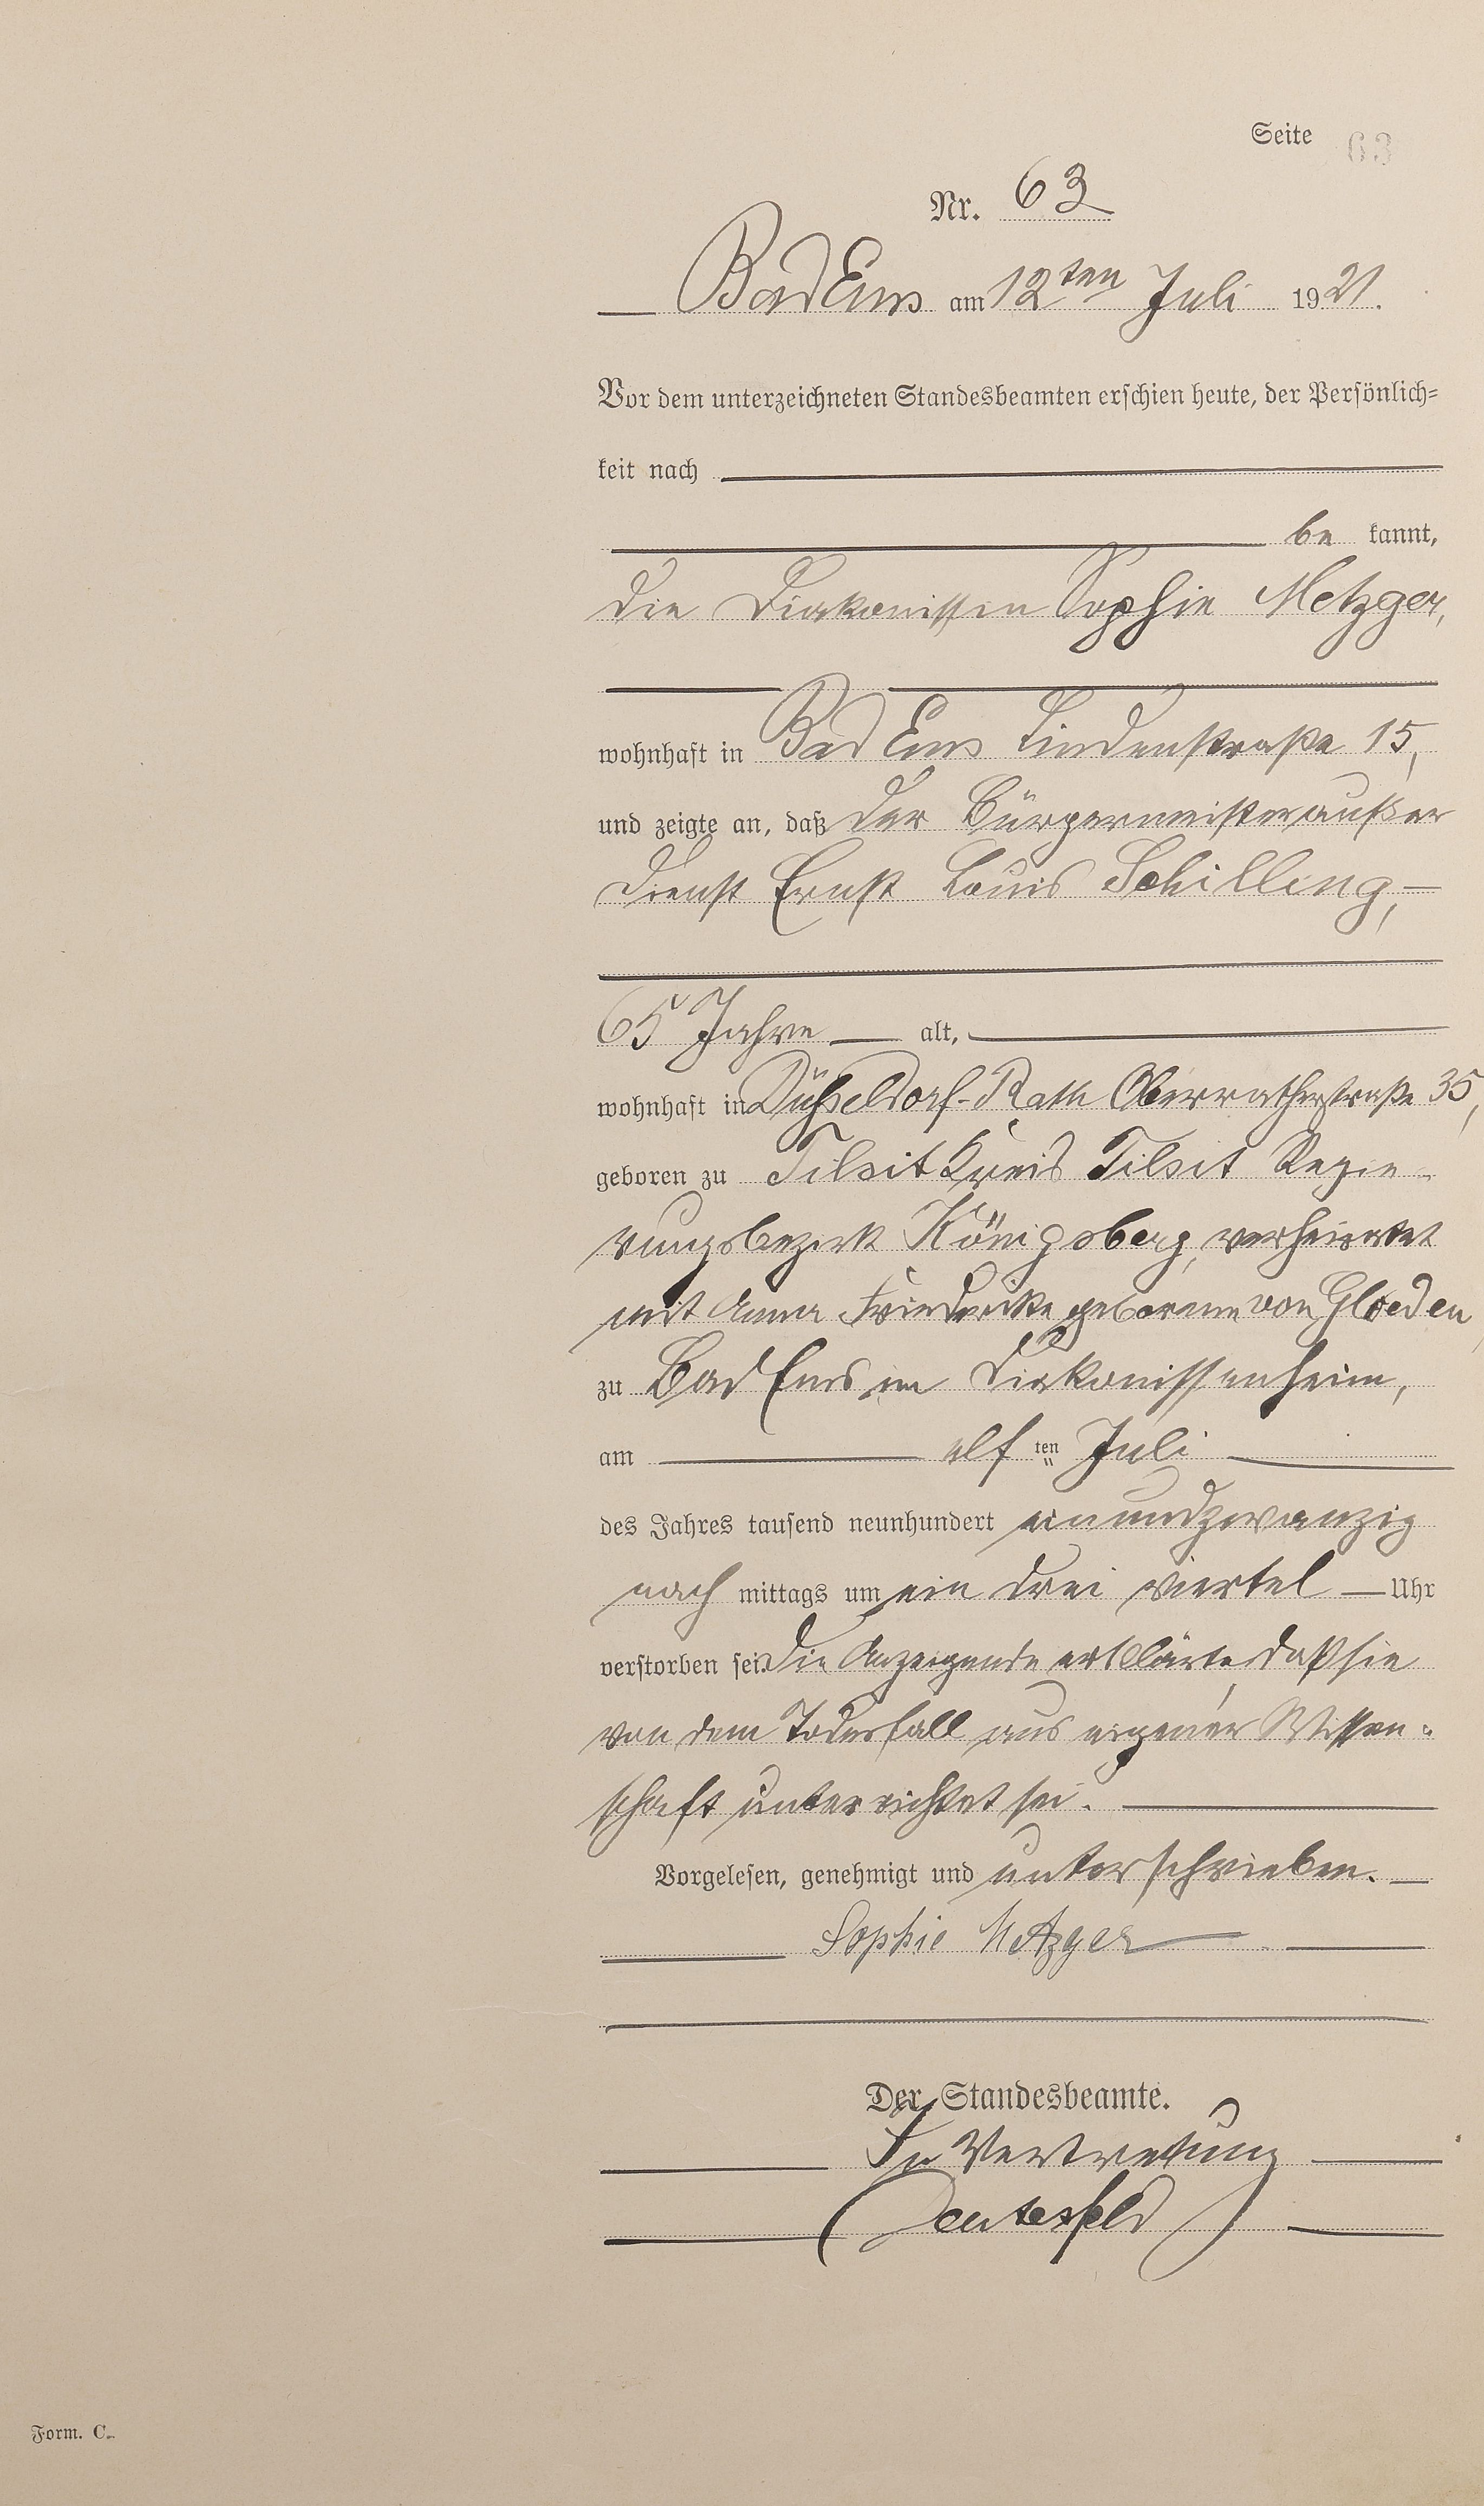 Seite 63
Nr. 63
Bad Ems am 12ten Juli 1921.
Vor dem unterzeichneten Standesbeamten erschien heute, der Persönlich-
keit nach
be kannt,
die Diakonissin Sophie Metzger,
wohnhaft in Bad Ems Lindenstraße 15,
und zeigte an, daß der Bürgermeister außer
Dienst Ernst Louis Schilling,
65 Jahre alt,
wohnhaft in Düsseldorf-Rath Oberratherstraße 35,
geboren zu Tilsit Kreis Tilsit Regie-
rungsbezirk Königsberg, verheiratet
mit Anna Friederike geborene von Gloeden,
zu Bad Ems im Diakonissenheim,
am elf ten Juli
des Jahres tausend neunhundert einundzwanzig
nach mittags um ein drei viertel Uhr
verstorben sei. Die Anzeigende erklärte, daß sie
von dem Todesfall aus eigener Wissen-
schaft unterrichtet sei.
Vorgelesen, genehmigt und unterschrieben.
Sophie Metzger
Der Standesbeamte.
In Vertretung
Form. C.